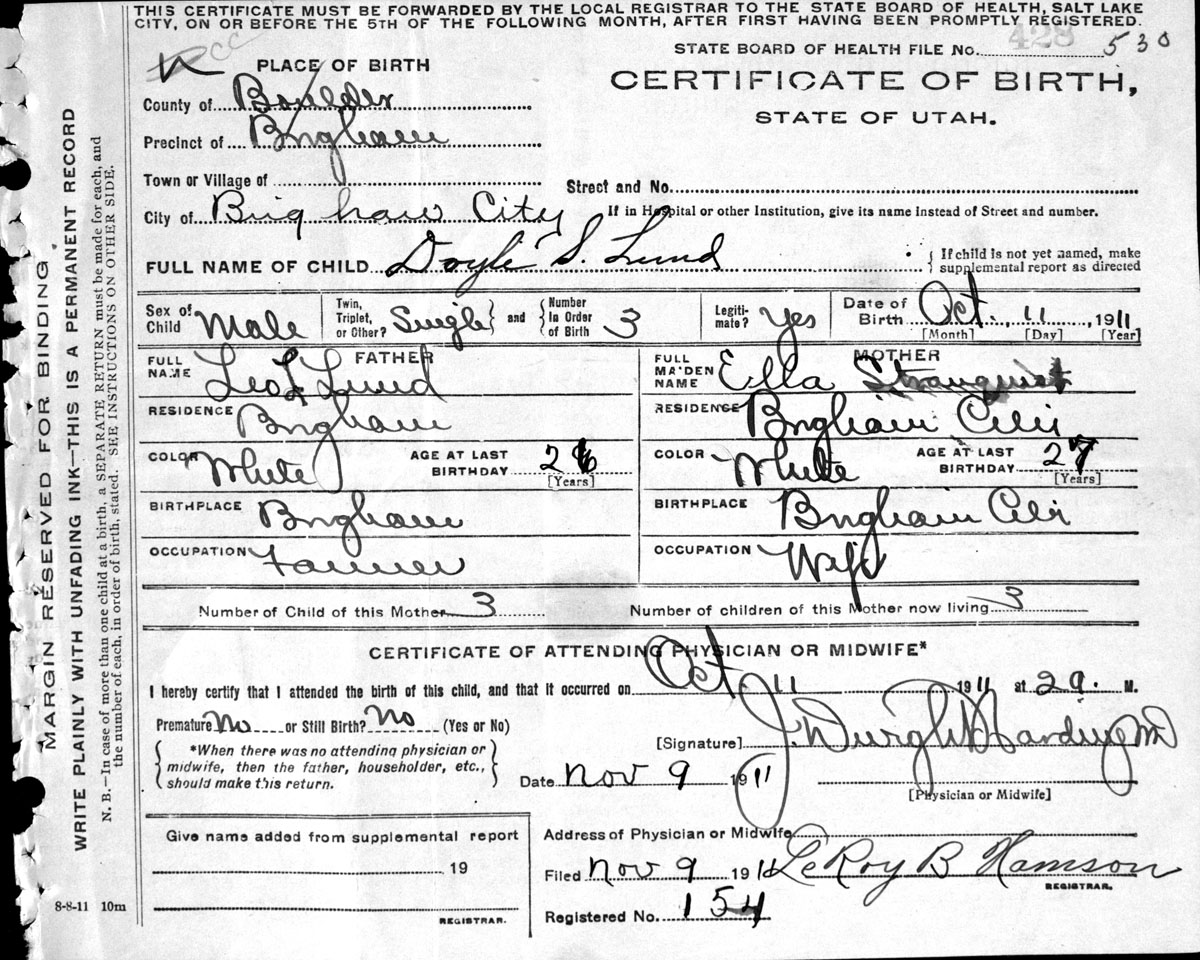 THIS CERTIFICATE MUST BE FORWARDED BY THE LOCAL REGISTRAR TO THE STATE BOARD OF HEALTH, SALT LAKE
CITY, ON OR BEFORE THE 5TH OF THE FOLLOWING MONTH, AFTER FIRST HAVING BEEN PROMPTLY REGISTERED.
STATE BOARD OF HEALTH FILE No. 428 530
PLACE OF BIRTH
CERTIFICATE OF BIRTH,
STATE OF UTAH.
County of Boulder
Precinct of Brigham
Town or Village of
Street and No.
City of Brigham City
If in Hospital or other Institution, give its name instead of Street and number.
FULL NAME OF CHILD Doyle S. Lund
{ If child is not yet named, make
supplemental report as directed
Sex of Child Male
Twin, Triplet, or Other? Single } and { Number in Order of Birth 3
Legitimate? Yes
Date of Birth Oct. 11, 1911
[Month] [Day] [Year]
FATHER
FULL NAME Leo L Lund
RESIDENCE Brigham
COLOR White
AGE AT LAST BIRTHDAY 26
[Years]
BIRTHPLACE Brigham
OCCUPATION Farmer
MOTHER
FULL MAIDEN NAME Ella Stranquist
RESIDENCE Brigham City
COLOR White
AGE AT LAST BIRTHDAY 27
[Years]
BIRTHPLACE Brigham City
OCCUPATION Wife
Number of Child of this Mother 3
Number of children of this Mother now living 3
CERTIFICATE OF ATTENDING PHYSICIAN OR MIDWIFE*
I hereby certify that I attended the birth of this child, and that it occurred on Oct. 11 1911 at 2 a. M.
Premature No or Still Birth? No (Yes or No)
*When there was no attending physician or
midwife, then the father, householder, etc.,
should make this return.
[Signature] J. Harding MD
Date Nov 9 1911
[Physician or Midwife]
Give name added from supplemental report
19
REGISTRAR.
Address of Physician or Midwife
Filed Nov 9 1911 LeRoy B
REGISTRAR.
Registered No. 154
8-8-11 10m
MARGIN RESERVED FOR BINDING
WRITE PLAINLY WITH UNFADING INK—THIS IS A PERMANENT RECORD
N. B.—In case of more than one child at a birth, a SEPARATE RETURN must be made for each, and
the number of each, in order of birth, stated. SEE INSTRUCTIONS ON OTHER SIDE.